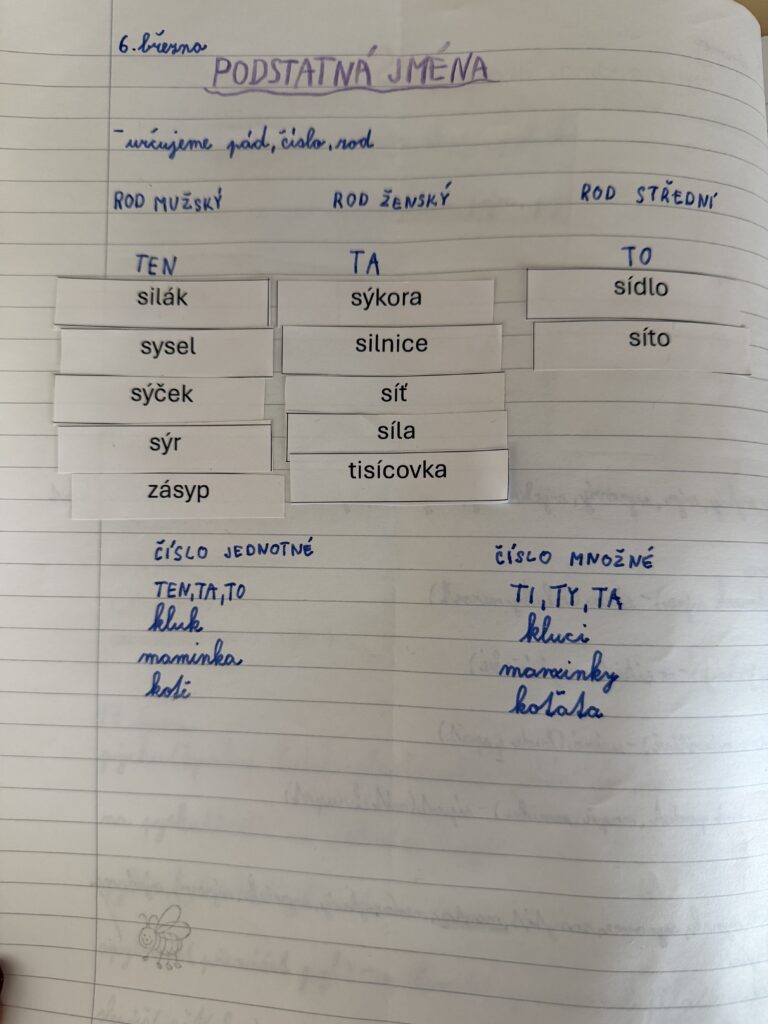 6. března
PODSTATNÁ JMÉNA
- určujeme pád, číslo, rod
ROD MUŽSKÝ ROD ŽENSKÝ ROD STŘEDNÍ
TEN TA TO
silák sýkora sídlo
sysel silnice síto
sýček síť
sýr síla
zásyp tisícovka
ČÍSLO JEDNOTNÉ ČÍSLO MNOŽNÉ
TEN, TA, TO TI, TY, TA
kluk kluci
maminka maminky
kotě koťata